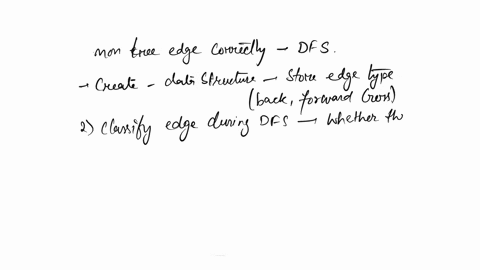 non tree edge correctly - DFS.
→ Create - data structure - Store edge type
(back, forward Cross)
2) Classify edge during DFS → whether th